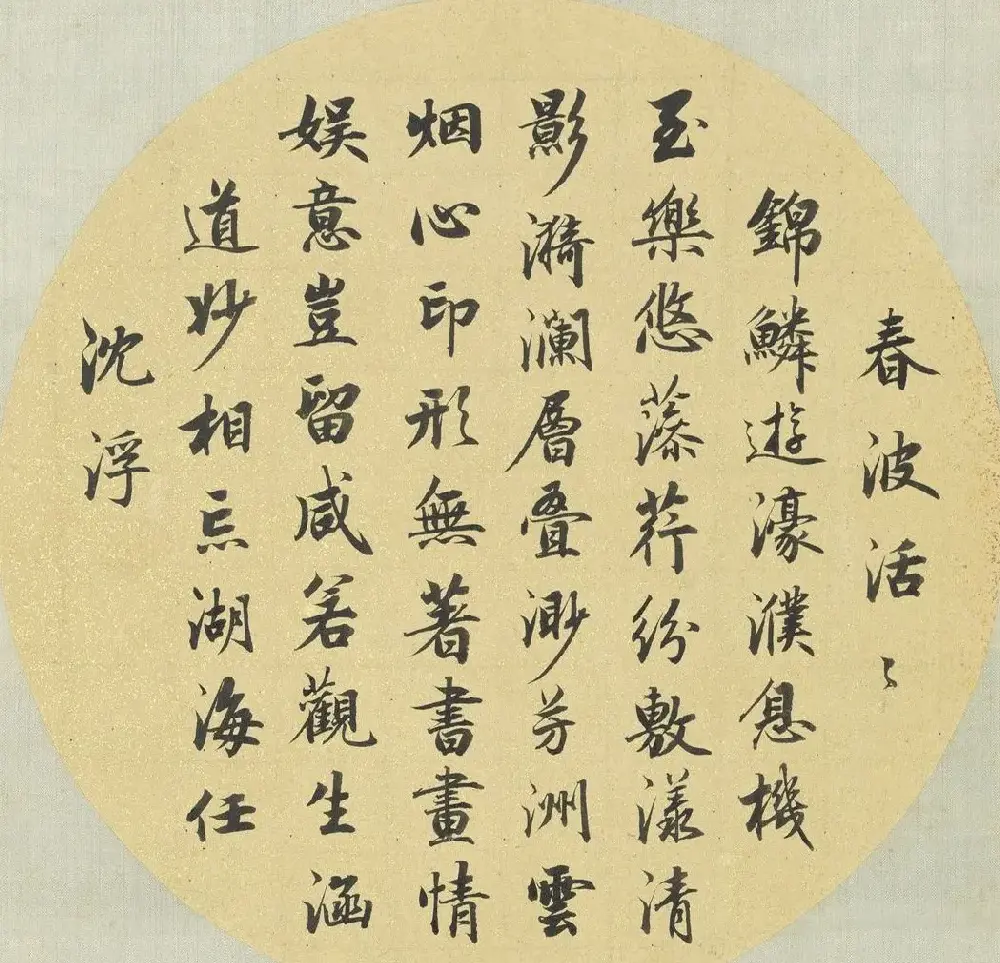 春波活〻
錦鱗遊濠濮息機
至樂悠藻荇紛敷漾清
影漪瀾層疊渺芳洲雲
烟心印形無著書畫情
娱意豈留咸若觀生涵
道妙相忘湖海任
沈浮